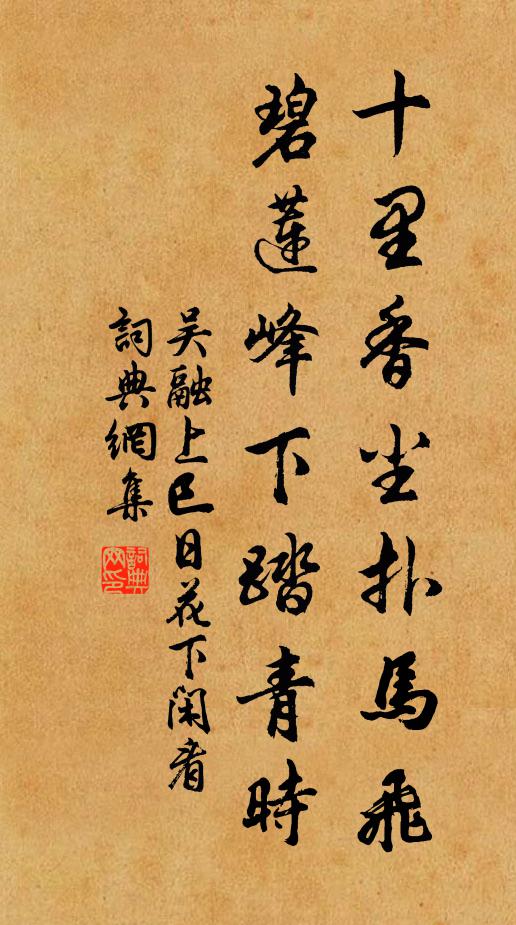 十里香尘扑馬飛
碧莲峰下踏青時
吴融上巳日花下閑看
詞典網集
詞典網印